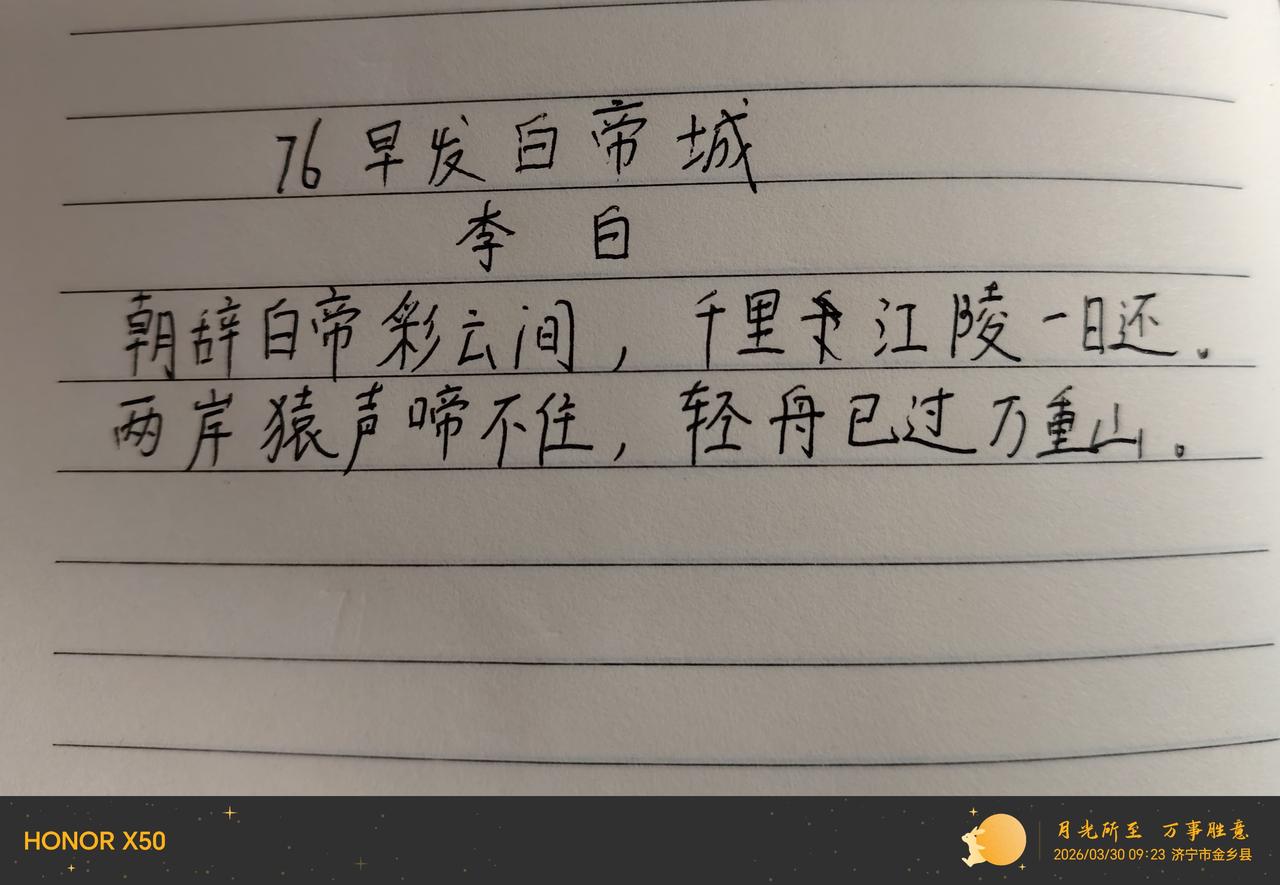 76 早发白帝城
李 白
朝辞白帝彩云间，千里江陵一日还。
两岸猿声啼不住，轻舟已过万重山。
HONOR X50
月光所至 万事胜意
2026/03/30 09:23 济宁市金乡县